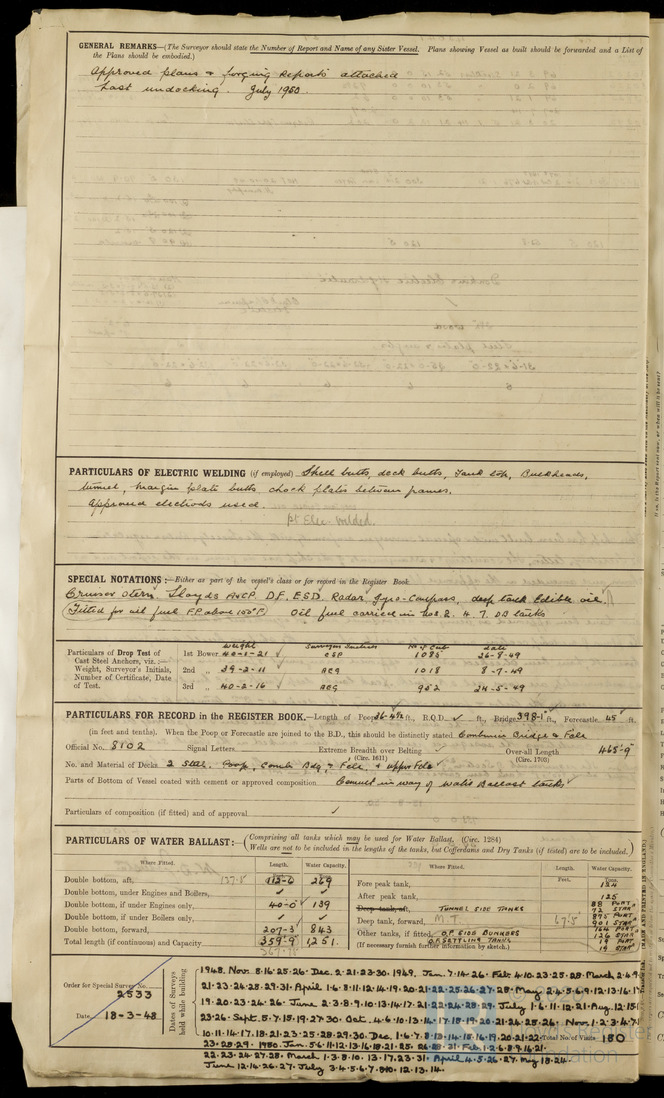 GENERAL REMARKS—(The Surveyor should state the Number of Report and Name of any Sister Vessel. Plans showing Vessel as built should be forwarded and a List of
the Plans should be embodied.)
Approved plans & forging reports attached
Last undocking. July 1950
PARTICULARS OF ELECTRIC WELDING (if employed) Shell butts, deck butts, Tank top, Bulkheads,
tunnel, margin plate butts, chock plates between frames.
Approved electrods used.
pt Elec. Welded.
SPECIAL NOTATIONS:—Either as part of the vessel's class or for record in the Register Book
Cruiser Stern. Lloyds A&CP. D.F. E.S.D. Radar, Gyro-Compass, deep tank Edible oil.
(Fitted for oil fuel F.P. above 150°F.) Oil fuel carried in Nos. 2. 4. 7. DB tanks
Particulars of Drop Test of
Cast Steel Anchors, viz.:—
Weight, Surveyor's Initials,
Number of Certificate, Date
of Test.
Weight Surveyors Initials No of Cert date
1st Bower 40-1-21 1085 26-8-49
2nd „ 39-2-11 ACG 1018 8-7-49
3rd „ 40-2-16 ACG 952 24-5-49
PARTICULARS FOR RECORD in the REGISTER BOOK.—Length of Poop ft., R.Q.D. ✓ ft., Bridge 398-1 ft., Forecastle 45 ft.
(in feet and tenths). When the Poop or Forecastle are joined to the B.D., this should be distinctly stated Combined Bridge & Fcle
Official No. 8102 Signal Letters Extreme Breadth over Belting (Circ. 1611) Over-all Length (Circ. 1703) 465-9
No. and Material of Decks 2 Steel. Poop, Comb. Bdg. & Fcle & upper Fcle
Parts of Bottom of Vessel coated with cement or approved composition Cement in way of Water Ballast tanks
Particulars of composition (if fitted) and of approval ✓
PARTICULARS OF WATER BALLAST:— (Comprising all tanks which may be used for Water Ballast. (Circ. 1284)
Wells are not to be included in the lengths of the tanks, but Cofferdams and Dry Tanks (if fitted) are to be included.)
Where Fitted. Length. Water Capacity.
Double bottom, aft, 137.5 112-0 269
Double bottom, under Engines and Boilers, ✓ ✓
Double bottom, if under Engines only, 40-0 139
Double bottom, if under Boilers only, ✓ ✓
Double bottom, forward, 207-3 843
Total length (if continuous) and Capacity 359-9 1,251.
Where Fitted. Length. Water Capacity.
Feet. Tons.
Fore peak tank, 124
After peak tank, 125
Deep tank, aft, TUNNEL SIDE TANKS 88 PORT
92 STAR
Deep tank, forward, M.T. 67.5 895 PORT
901 STAR
Other tanks, if fitted, O.F. SIDE BUNKERS 164 PORT
126 STAR
(If necessary furnish further information by sketch.) O.F. SETTLING TANKS 19 PORT
19 STAR
Order for Special Survey No. 2533
Date 18-3-48
Dates of Surveys
held while building
1948. Nov. 8.16.25.26. Dec. 2.21.23.30. 1949. Jan. 7.14.26. Feb. 4.10.23.25.28. March 2.4.9
21.23.24.28.29.31. April 1.6.8.11.12.14.19.20.21.22.25.26.27.28. May 2.4.5.6.9.12.13.16.17
19.20.23.24.26. June 2.3.8.9.10.13.14.17.21.22.24.28.29. July 1.6.11.12.21. Aug. 12.15
23.26. Sept. 5.7.15.19.27.30. Oct. 4.6.10.13.14.17.18.19.20.21.24.25.26. Nov. 1.2.3.4.7
10.11.14.17.18.21.23.25.28.29.30. Dec. 1.6.7.8.13.14.15.16.19.20.21.22. Total No. of Visits 150
23.28.29. 1950. Jan. 5.6.11.12.13.16.18.21.25.26.28.31. Feb. 1.2.6.8.9.16.21.
22.23.24.27.28. March 1.3.8.10.13.17.23.31. April 4.5.26.27. May 18.24.
June 12.14.26.27. July 3.4.5.6.7.8.10.12.13.14.